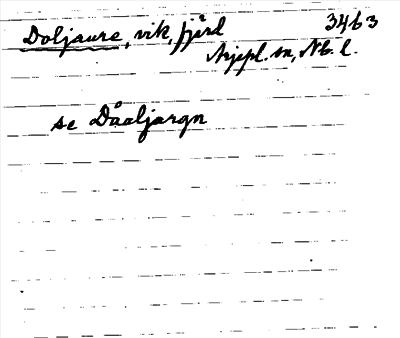 Doljaure, vik, fjärd 3463
Arjepl. sn, Nb. l.
se Dåaljargn